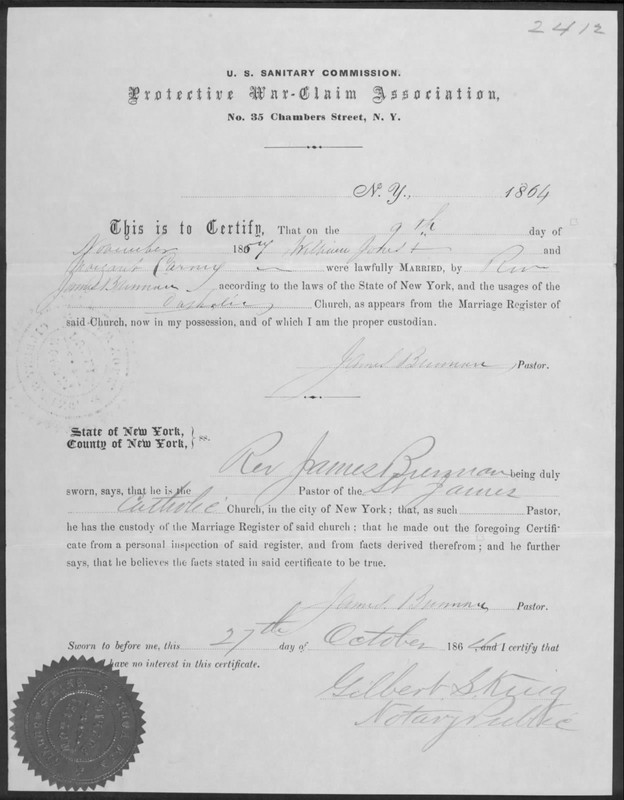 2412
U. S. SANITARY COMMISSION.
Protective War-Claim Association,
No. 35 Chambers Street, N. Y.
N. Y., 1864
This is to Certify, That on the 9th day of
November 186 William Jones and
Margaret Carney were lawfully MARRIED, by Rev
James Brennan according to the laws of the State of New York, and the usages of the
Catholic Church, as appears from the Marriage Register of
said Church, now in my possession, and of which I am the proper custodian.
James Brennan Pastor.
State of New York,
County of New York, } ss.
Rev James Brennan being duly
sworn, says, that he is the Pastor of the St James
Catholic Church, in the city of New York; that, as such Pastor,
he has the custody of the Marriage Register of said church; that he made out the foregoing Certifi-
cate from a personal inspection of said register, and from facts derived therefrom; and he further
says, that he believes the facts stated in said certificate to be true.
James Brennan Pastor.
Sworn to before me, this 27th day of October 1864, and I certify that
have no interest in this certificate.
Gilbert S. King
Notary Public